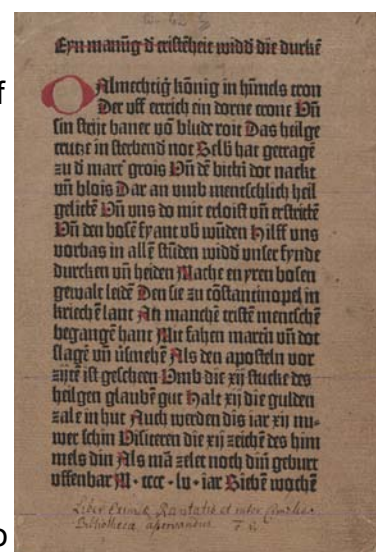 Eyn manũg d̕ cristẽheit widd̕ die durkẽ
f
OAlmechtig̕ kõnig in hĩmels tron
Der uff ertrich ein dorne crone Vñ
sin strijt baner võ blude roit Das heilge
crutze in sterbend̕ not Selb̕ hat getragẽ
zu d̕ mart̕ grois Vñ dẽ bittñ dot nackt
vñ blois Dar an vmb menschlich heil
gelittẽ Vñ uns do mit erloist vñ erstrittẽ
Vñ den bosẽ fyant vb̕ wũden Hilff uns
vorbas in allẽ stũden widd̕ unser fynde
durcken vñ heiden Mache en yren bosen
gewalt leidẽ Den sie zu cõstantinopel in
kriechẽ lant An manchẽ cristẽ menschẽ
begangẽ hant Mit fahen martñ vñ dot
slagẽ vñ ṽsmehẽ Als den aposteln vor
zijtẽ ist gescheen Vmb die xij stucke des
heilgen glaubẽ gut Halt xij die gulden
zale in hut Auch werden dis iar xij nu-
wer schin Visiteren die xij zeichẽ des him
mels din Als mã zelet noch dĩn geburt
uffenbar M·cccc·lv·iar Siebẽ wochẽ
Liber Eximiæ Raritatis et inter Cimelia
Bibliothecæ asservandus
o